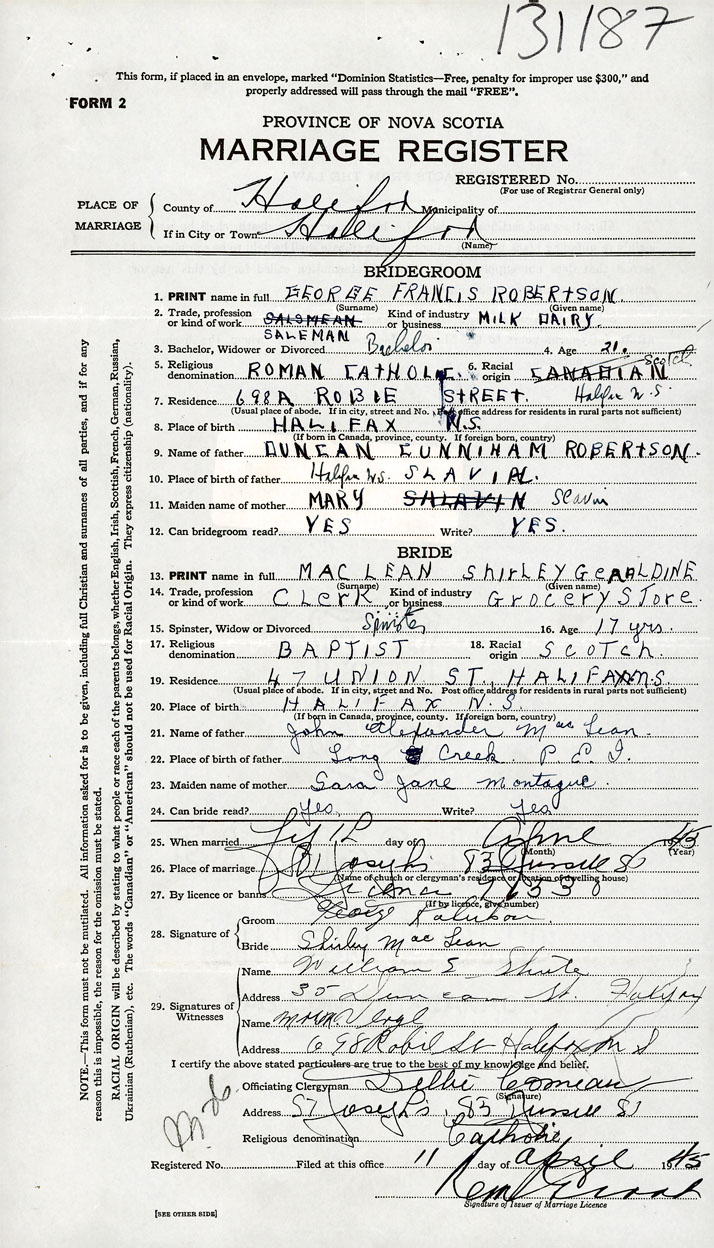 131187
This form, if placed in an envelope, marked "Dominion Statistics—Free, penalty for improper use $300," and
properly addressed will pass through the mail "FREE".
FORM 2
PROVINCE OF NOVA SCOTIA
MARRIAGE REGISTER
REGISTERED No.
(For use of Registrar General only)
PLACE OF MARRIAGE
County of Halifax Municipality of
If in City or Town Halifax
(Name)
BRIDEGROOM
1. PRINT name in full GEORGE FRANCIS ROBERTSON.
(Surname) (Given name)
2. Trade, profession or kind of work SALSMEAN SALEMAN Kind of industry or business MILK DAIRY.
3. Bachelor, Widower or Divorced Bachelor 4. Age 21.
5. Religious denomination ROMAN CATHOLIC. 6. Racial origin CANADIAN Scotch
7. Residence 698A ROBIE STREET. Halifax N.S.
(Usual place of abode. If in city, street and No. Post office address for residents in rural parts not sufficient)
8. Place of birth HALIFAX N.S.
(If born in Canada, province, county. If foreign born, country)
9. Name of father DUNCAN CUNNIHAM ROBERTSON.
10. Place of birth of father Halifax N.S. SLAVIN.
11. Maiden name of mother MARY SALAVIN Slavin
12. Can bridegroom read? YES Write? YES.
BRIDE
13. PRINT name in full MACLEAN ShirLEY GeRALDINE
(Surname) (Given name)
14. Trade, profession or kind of work Clerk Kind of industry or business Grocery Store.
15. Spinster, Widow or Divorced Spinster 16. Age 17 yrs.
17. Religious denomination BAPTIST 18. Racial origin Scotch.
19. Residence 47 UNION ST. HALIFAX N.S.
(Usual place of abode. If in city, street and No. Post office address for residents in rural parts not sufficient)
20. Place of birth HALIFAX N.S.
(If born in Canada, province, county. If foreign born, country)
21. Name of father John Alexander MacLean.
22. Place of birth of father Long Creek. P.E.I.
23. Maiden name of mother Sara Jane Montague.
24. Can bride read? Yes, Write? Yes
25. When married day of 1945
(Month) (Year)
26. Place of marriage St Josephs 83 Russell St
(Name of church or clergyman's residence or location of dwelling house)
27. By licence or banns License 97330
(If by licence, give number)
28. Signature of
Groom George Robertson
Bride Shirley MacLean
29. Signatures of Witnesses
Name William E Shute
Address 35 Duncan St. Halifax
Name
Address 698 Robie St Halifax N S
I certify the above stated particulars are true to the best of my knowledge and belief.
Officiating Clergyman Comeau
(Signature)
Address St Joseph's, 83 Russell St
Religious denomination Catholic
Registered No. Filed at this office 11 day of April 1945
Signature of Issuer of Marriage Licence
[SEE OTHER SIDE]
NOTE.—This form must not be mutilated. All information asked for is to be given, including full Christian and surnames of all parties, and if for any
reason this is impossible, the reason for the omission must be stated.
RACIAL ORIGIN will be described by stating to what people or race each of the parents belongs, whether English, Irish, Scottish, French, German, Russian,
Ukrainian (Ruthenian), etc. The words "Canadian" or "American" should not be used for Racial Origin. They express citizenship (nationality).